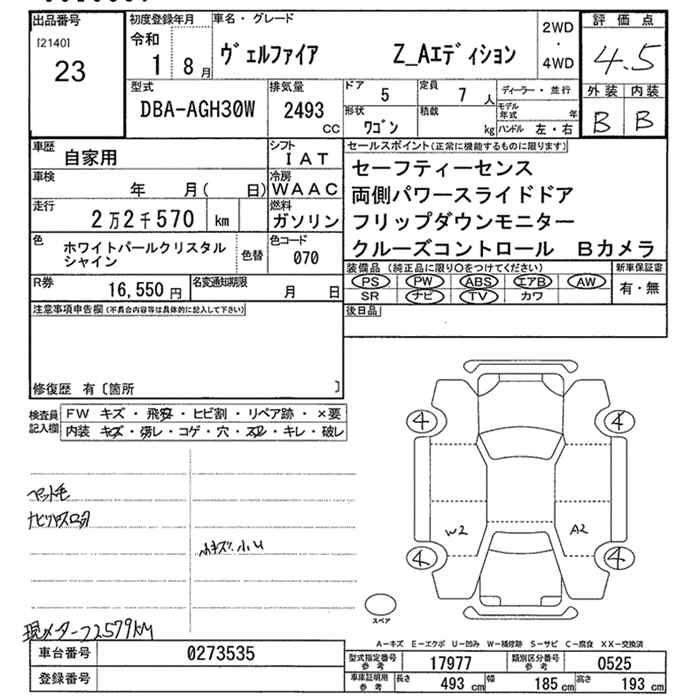 出品番号 初度登録年月 車名・グレード 2WD・4WD 評価点
[2140] 令和
23 1 8月 ヴェルファイア Z_Aエディション 4.5
外装 内装
B B
型式 排気量 ドア 定員 ディーラー・並行
DBA-AGH30W 2493 CC 5 7人 モデル年式 年
形状 積載
ワゴン kg ハンドル 左・右
車歴 自家用 シフト IAT
車検 年 月( 日) 冷房 WAAC
走行 2万2千570 km 燃料 ガソリン
色 ホワイトパールクリスタルシャイン 色替 色コード 070
R券 16,550円 名変通知期限 月 日
セールスポイント(正常に機能するものに限ります)
セーフティーセンス
両側パワースライドドア
フリップダウンモニター
クルーズコントロール Bカメラ
装備品(純正品に限り○をつけてください) 新車保証書
PS PW ABS エアB AW 有・無
SR ナビ TV カワ
後日品
注意事項申告欄(不具合内容等は具体的に記入して下さい)
修復歴 有〔箇所 〕
検査員記入欄 FW キズ・飛石・ヒビ割・リペア跡・×要
内装 キズ・汚レ・コゲ・穴・スレ・キレ・破レ
ペット毛
小キズ、小U
現メーター22579KM
4 4
W2 A2
4 4
スペア
A-キズ E-エクボ U-凹み W-補修跡 S-サビ C-腐食 XX-交換済
車台番号 0273535
登録番号
型式指定番号参考 17977 類別区分番号参考 0525
車庫証明用参考 長さ 493cm 幅 185cm 高さ 193cm